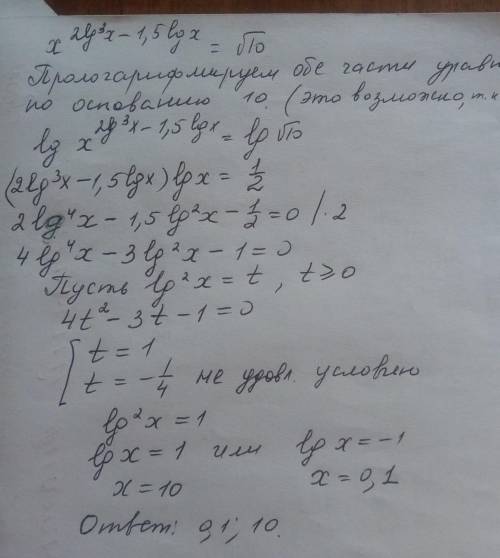 x^(2lg³x − 1,5lgx) = √10
Прологарифмируем обе части уравн
по основанию 10. (это возможно, т.к
lg x^(2lg³x − 1,5lgx) = lg √10
(2lg³x − 1,5lgx) lgx = 1/2
2lg⁴x − 1,5lg²x − 1/2 = 0 /·2
4lg⁴x − 3lg²x − 1 = 0
Пусть lg²x = t, t ≥ 0
4t² − 3t − 1 = 0
[ t = 1
t = −1/4 не удовл. условию
lg²x = 1
lgx = 1 или lgx = −1
x = 10 x = 0,1
Ответ: 0,1; 10.